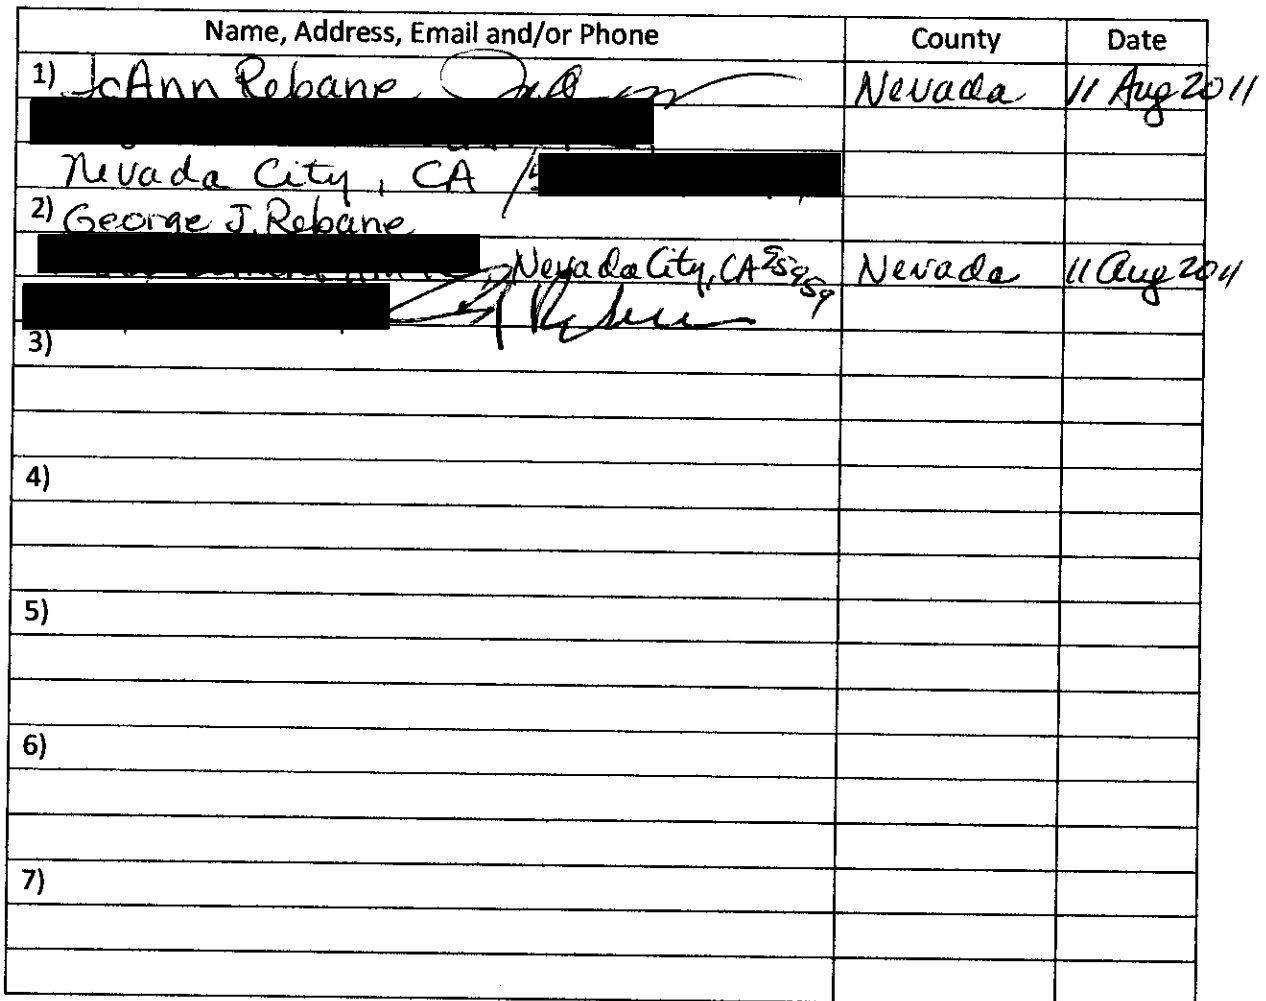 Name, Address, Email and/or Phone County Date
1) JoAnn Rebane Nevada 11 Aug 2011
Nevada City, CA
2) George J. Rebane
Nevada City, CA 95959 Nevada 11 Aug 2011
3)
4)
5)
6)
7)